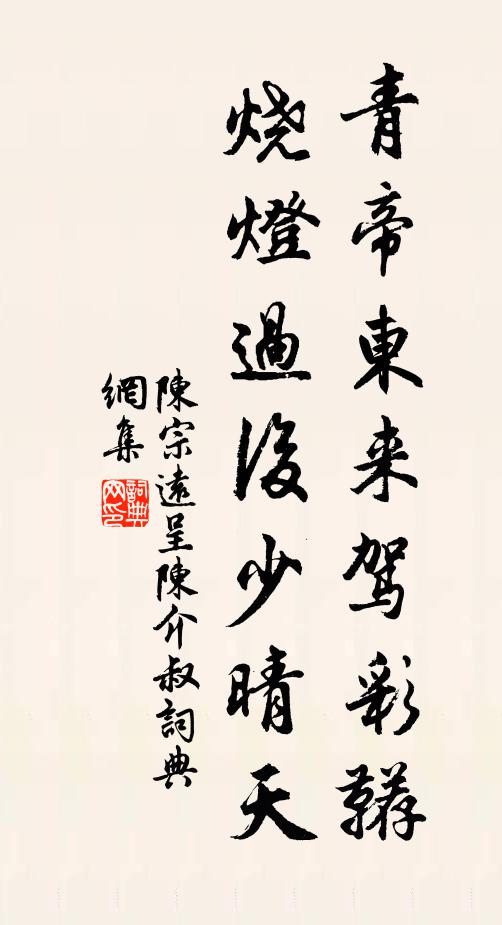 青帝東来驾彩鞯
烧燈過後少晴天
陳宗遠呈陳介叔詞典
網集
詞典网印